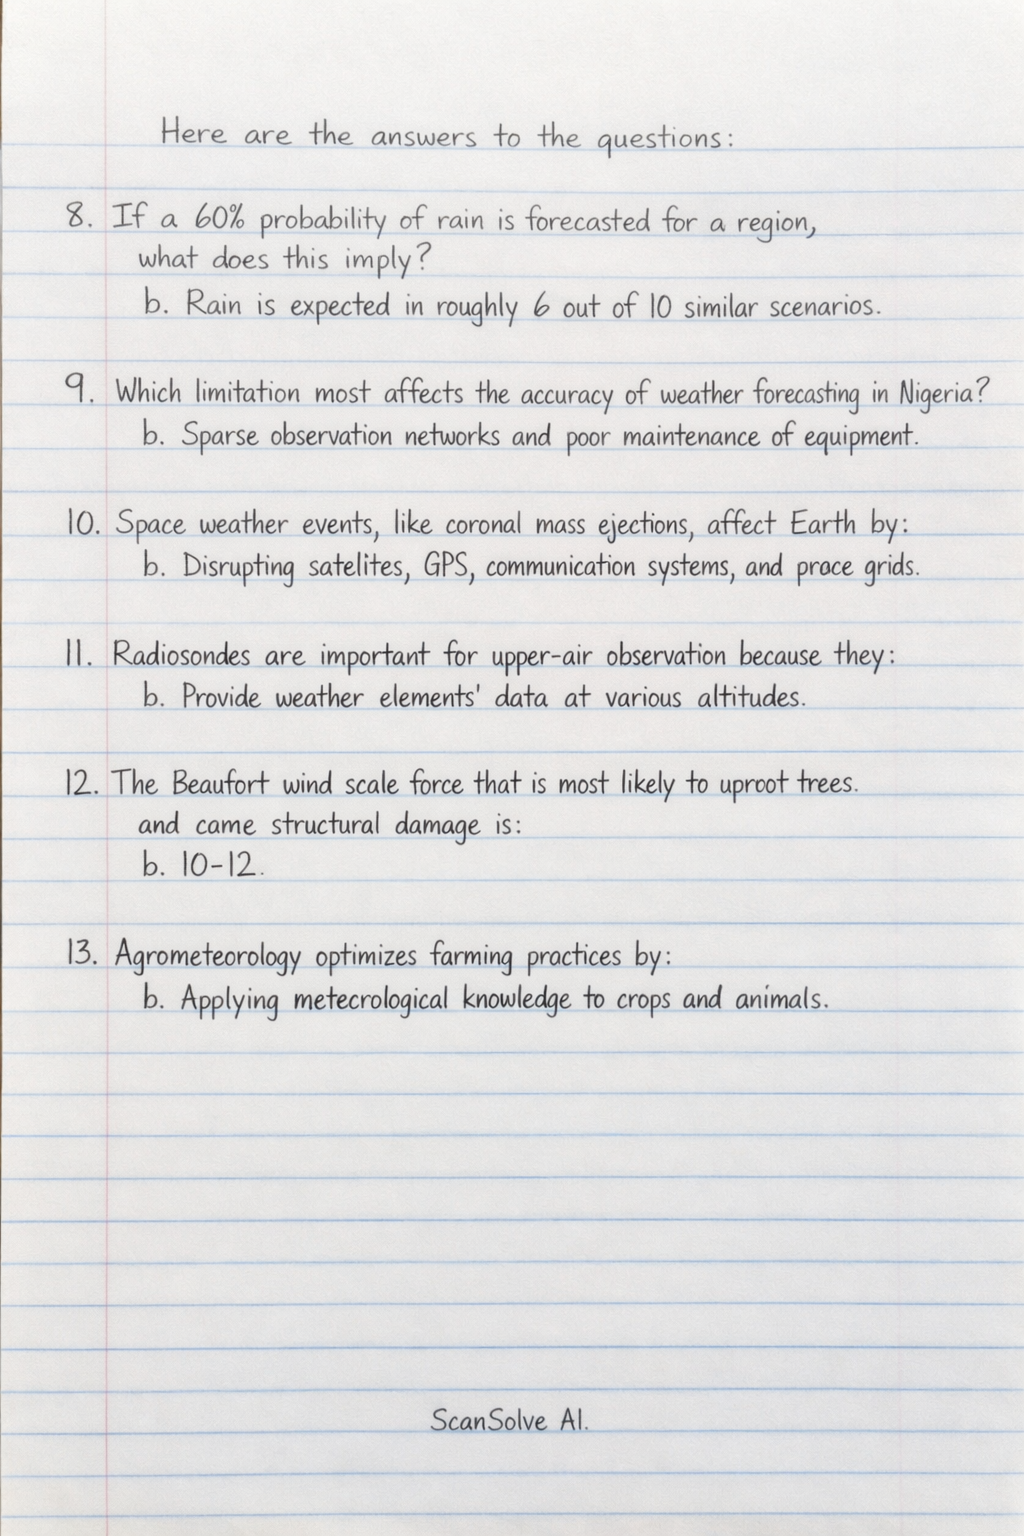 Here are the answers to the questions:
8. If a 60% probability of rain is forecasted for a region,
what does this imply?
b. Rain is expected in roughly 6 out of 10 similar scenarios.
9. Which limitation most affects the accuracy of weather forecasting in Nigeria?
b. Sparse observation networks and poor maintenance of equipment.
10. Space weather events, like coronal mass ejections, affect Earth by:
b. Disrupting satelites, GPS, communication systems, and proce grids.
11. Radiosondes are important for upper-air observation because they:
b. Provide weather elements' data at various altitudes.
12. The Beaufort wind scale force that is most likely to uproot trees.
and came structural damage is:
b. 10-12.
13. Agrometeorology optimizes farming practices by:
b. Applying metecrological knowledge to crops and animals.
ScanSolve AI.